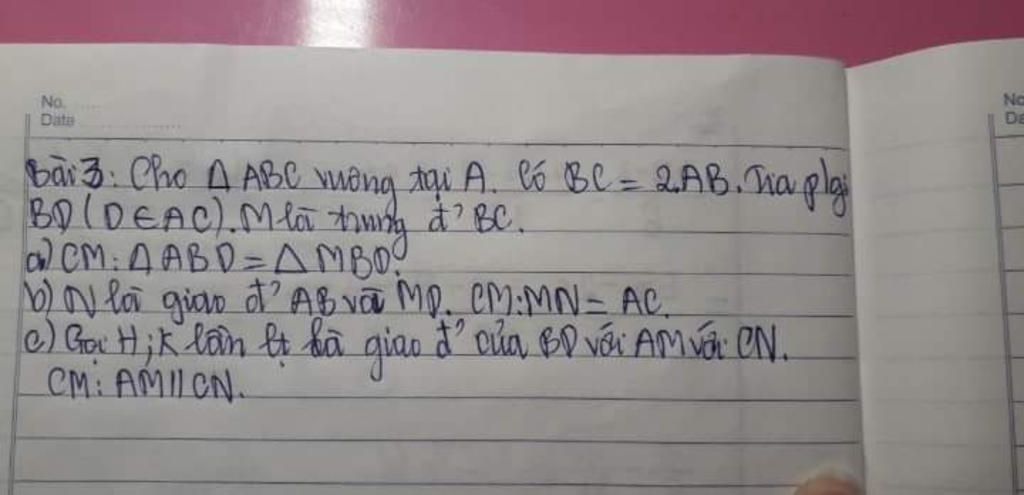 No.
Date
Bài 3: Cho Δ ABC vuông tại A. Có BC = 2AB. Tia p/gi
BD (D ∈ AC). M là trung đ' BC.
a) CM: Δ ABD = Δ MBD.
b) N là giao đ' AB và MD. CM: MN = AC.
c) Gọi H; K lần lt là giao đ' của BD với AM với CN.
CM: AM // CN.
No
Da